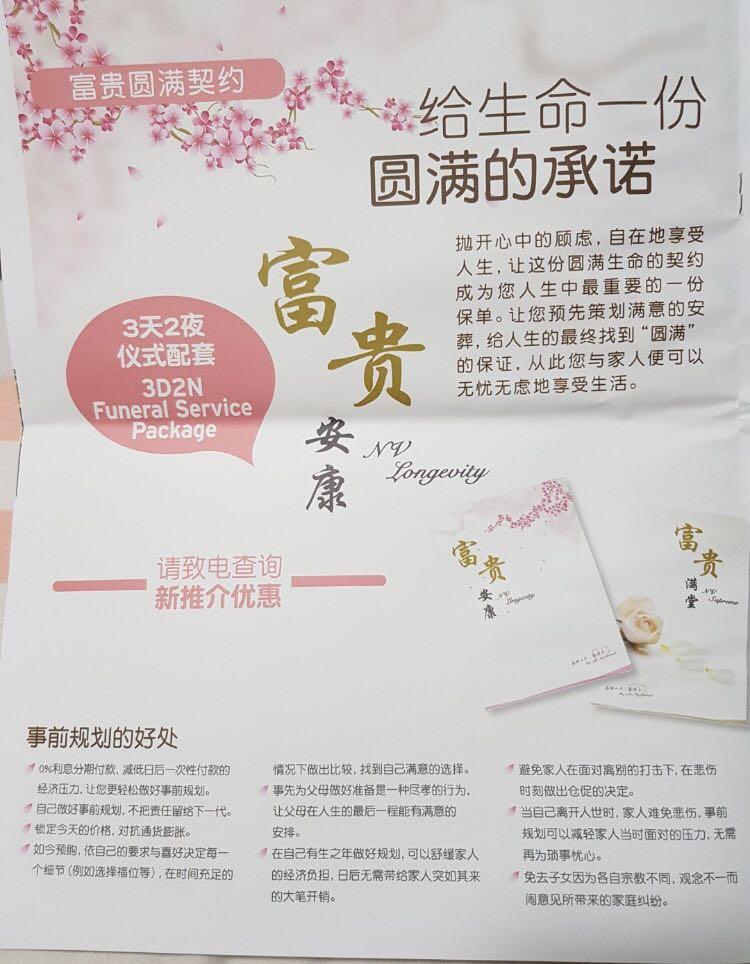 富贵圆满契约
给生命一份
圆满的承诺
抛开心中的顾虑，自在地享受
人生，让这份圆满生命的契约
成为您人生中最重要的一份
保单。让您预先策划满意的安
葬，给人生的最终找到“圆满”
的保证，从此您与家人便可以
无忧无虑地享受生活。
3天2夜
仪式配套
3D2N
Funeral Service
Package
富
贵
安
康
NV
Longevity
请致电查询
新推介优惠
富
贵
安
康
NV
Longevity
富
贵
满
堂
NV
Supreme
事前规划的好处
0%利息分期付款，减低日后一次性付款的
经济压力，让您更轻松做好事前规划。
自己做好事前规划，不把责任留给下一代。
锁定今天的价格，对抗通货膨胀。
如今预购，依自己的要求与喜好决定每一
个细节（例如选择福位等），在时间充足的
情况下做出比较，找到自己满意的选择。
事先为父母做好准备是一种尽孝的行为，
让父母在人生的最后一程能有满意的
安排。
在自己有生之年做好规划，可以舒缓家人
的经济负担，日后无需带给家人突如其来
的大笔开销。
避免家人在面对离别的打击下，在悲伤
时刻做出仓促的决定。
当自己离开人世时，家人难免悲伤，事前
规划可以减轻家人当时面对的压力，无需
再为琐事忧心。
免去子女因为各自宗教不同，观念不一而
闹意见所带来的家庭纠纷。